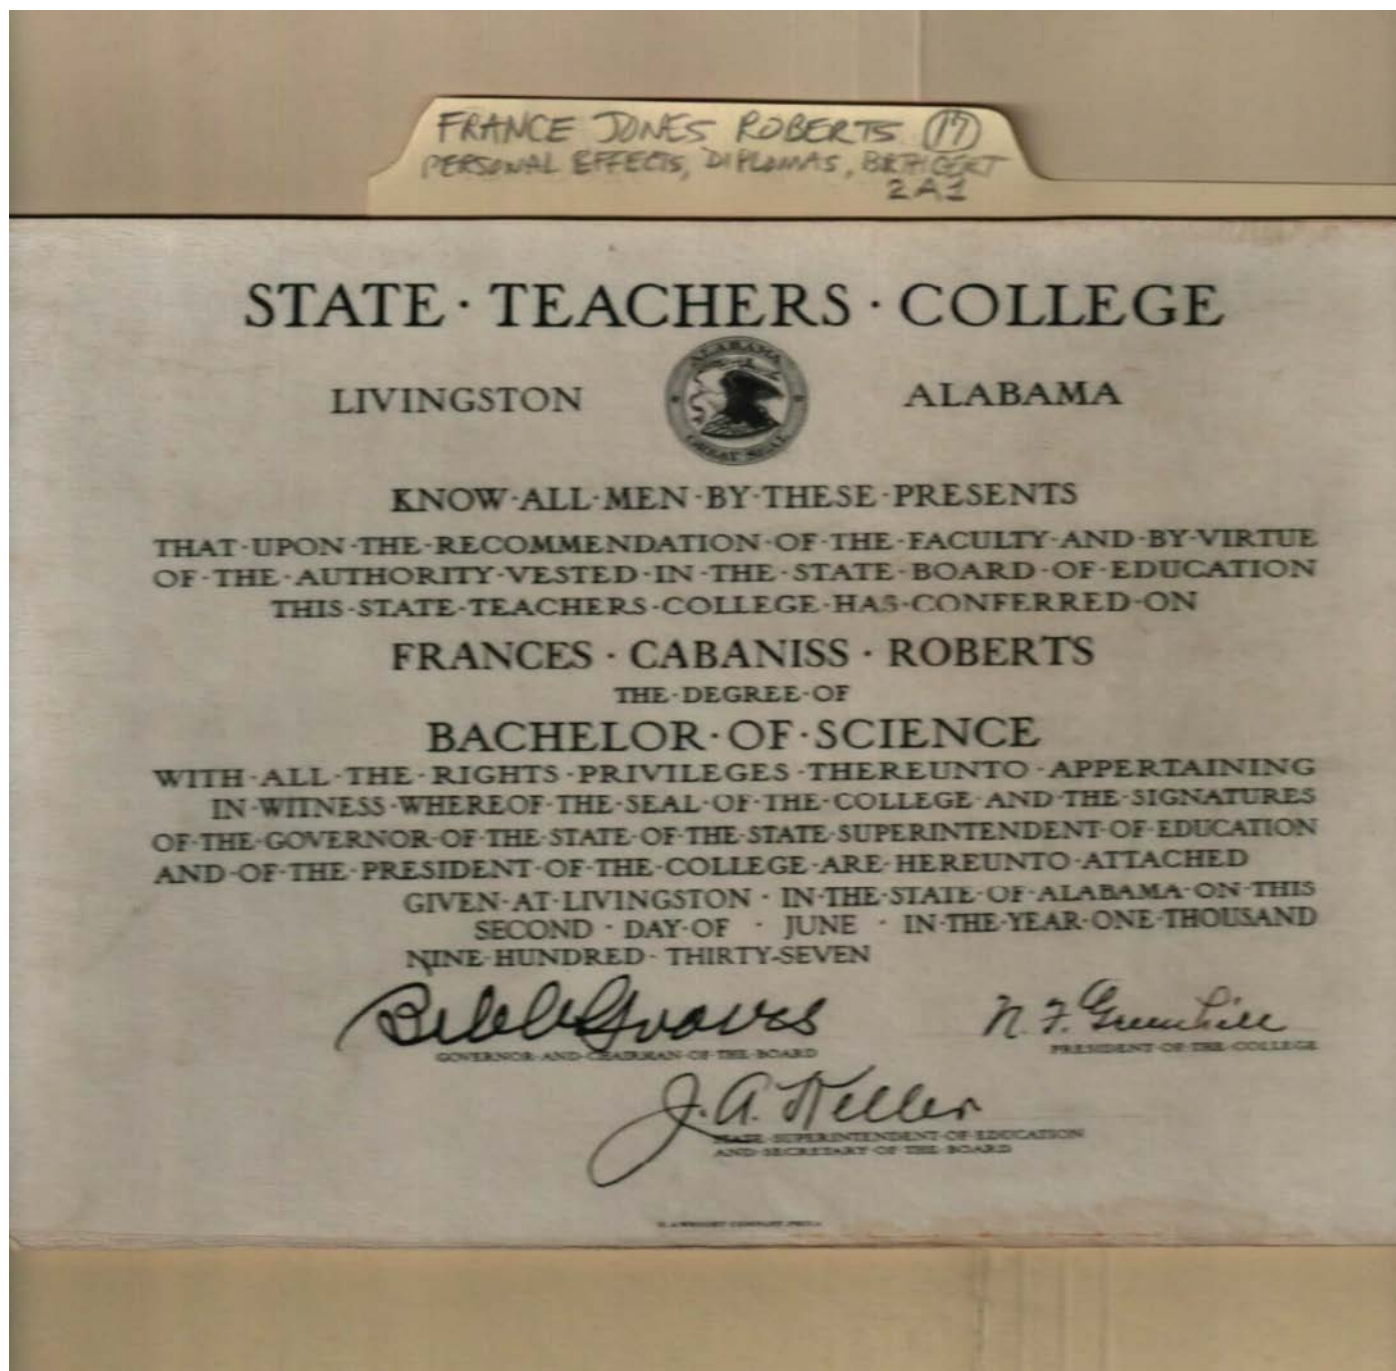 FRANCE JONES ROBERTS 17
PERSONAL EFFECTS, DIPLOMAS, BRTH CERT
2A1
STATE · TEACHERS · COLLEGE
ALABAMA
GREAT SEAL
LIVINGSTON ALABAMA
KNOW·ALL·MEN·BY·THESE·PRESENTS
THAT·UPON·THE·RECOMMENDATION·OF·THE·FACULTY·AND·BY·VIRTUE
OF·THE·AUTHORITY·VESTED·IN·THE·STATE·BOARD·OF·EDUCATION
THIS·STATE·TEACHERS·COLLEGE·HAS·CONFERRED·ON
FRANCES · CABANISS · ROBERTS
THE·DEGREE·OF
BACHELOR·OF·SCIENCE
WITH·ALL·THE·RIGHTS·PRIVILEGES·THEREUNTO·APPERTAINING
IN·WITNESS·WHEREOF·THE·SEAL·OF·THE·COLLEGE·AND·THE·SIGNATURES
OF·THE·GOVERNOR·OF·THE·STATE·OF·THE·STATE·SUPERINTENDENT·OF·EDUCATION
AND·OF·THE·PRESIDENT·OF·THE·COLLEGE·ARE·HEREUNTO·ATTACHED
GIVEN·AT·LIVINGSTON · IN·THE·STATE·OF·ALABAMA·ON·THIS
SECOND · DAY·OF · JUNE · IN·THE·YEAR·ONE·THOUSAND
NINE·HUNDRED· THIRTY-SEVEN
Bibb Graves N. F. Greenhill
GOVERNOR·AND·CHAIRMAN·OF·THE·BOARD PRESIDENT·OF·THE·COLLEGE
J. A. Keller
STATE·SUPERINTENDENT·OF·EDUCATION
AND·SECRETARY·OF·THE·BOARD